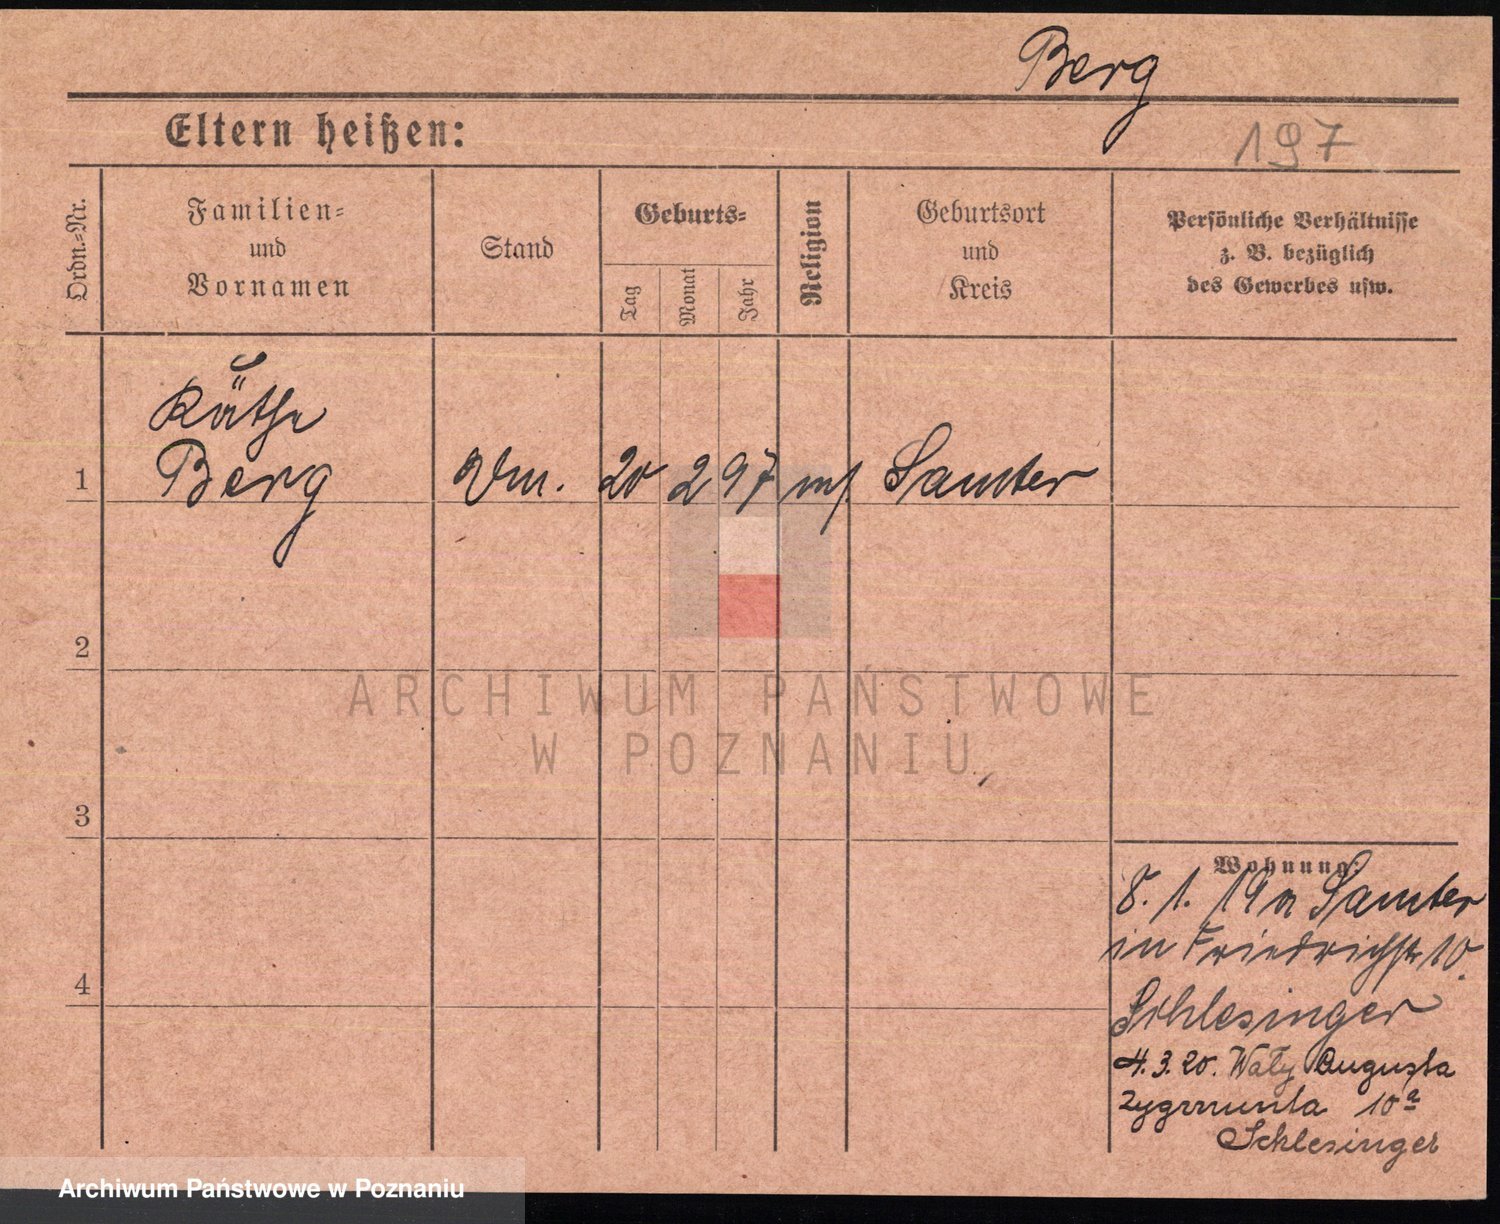 Berg
Eltern heißen:
197
Ordn.-Nr.
Familien-
und
Vornamen
Stand
Geburts-
Tag
Monat
Jahr
Religion
Geburtsort
und
Kreis
Persönliche Verhältnisse
z. B. bezüglich
des Gewerbes usw.
Käthe
1 Berg 20 2 97 Samter
2
ARCHIWUM PAŃSTWOWE
W POZNANIU
3
Wohnung:
8. 1. 19 a Samter
in Friedrichstr 10.
4
Schlesinger
4. 3. 20. Wały Augusta
Zygmunta 10a
Schlesinger
Archiwum Państwowe w Poznaniu